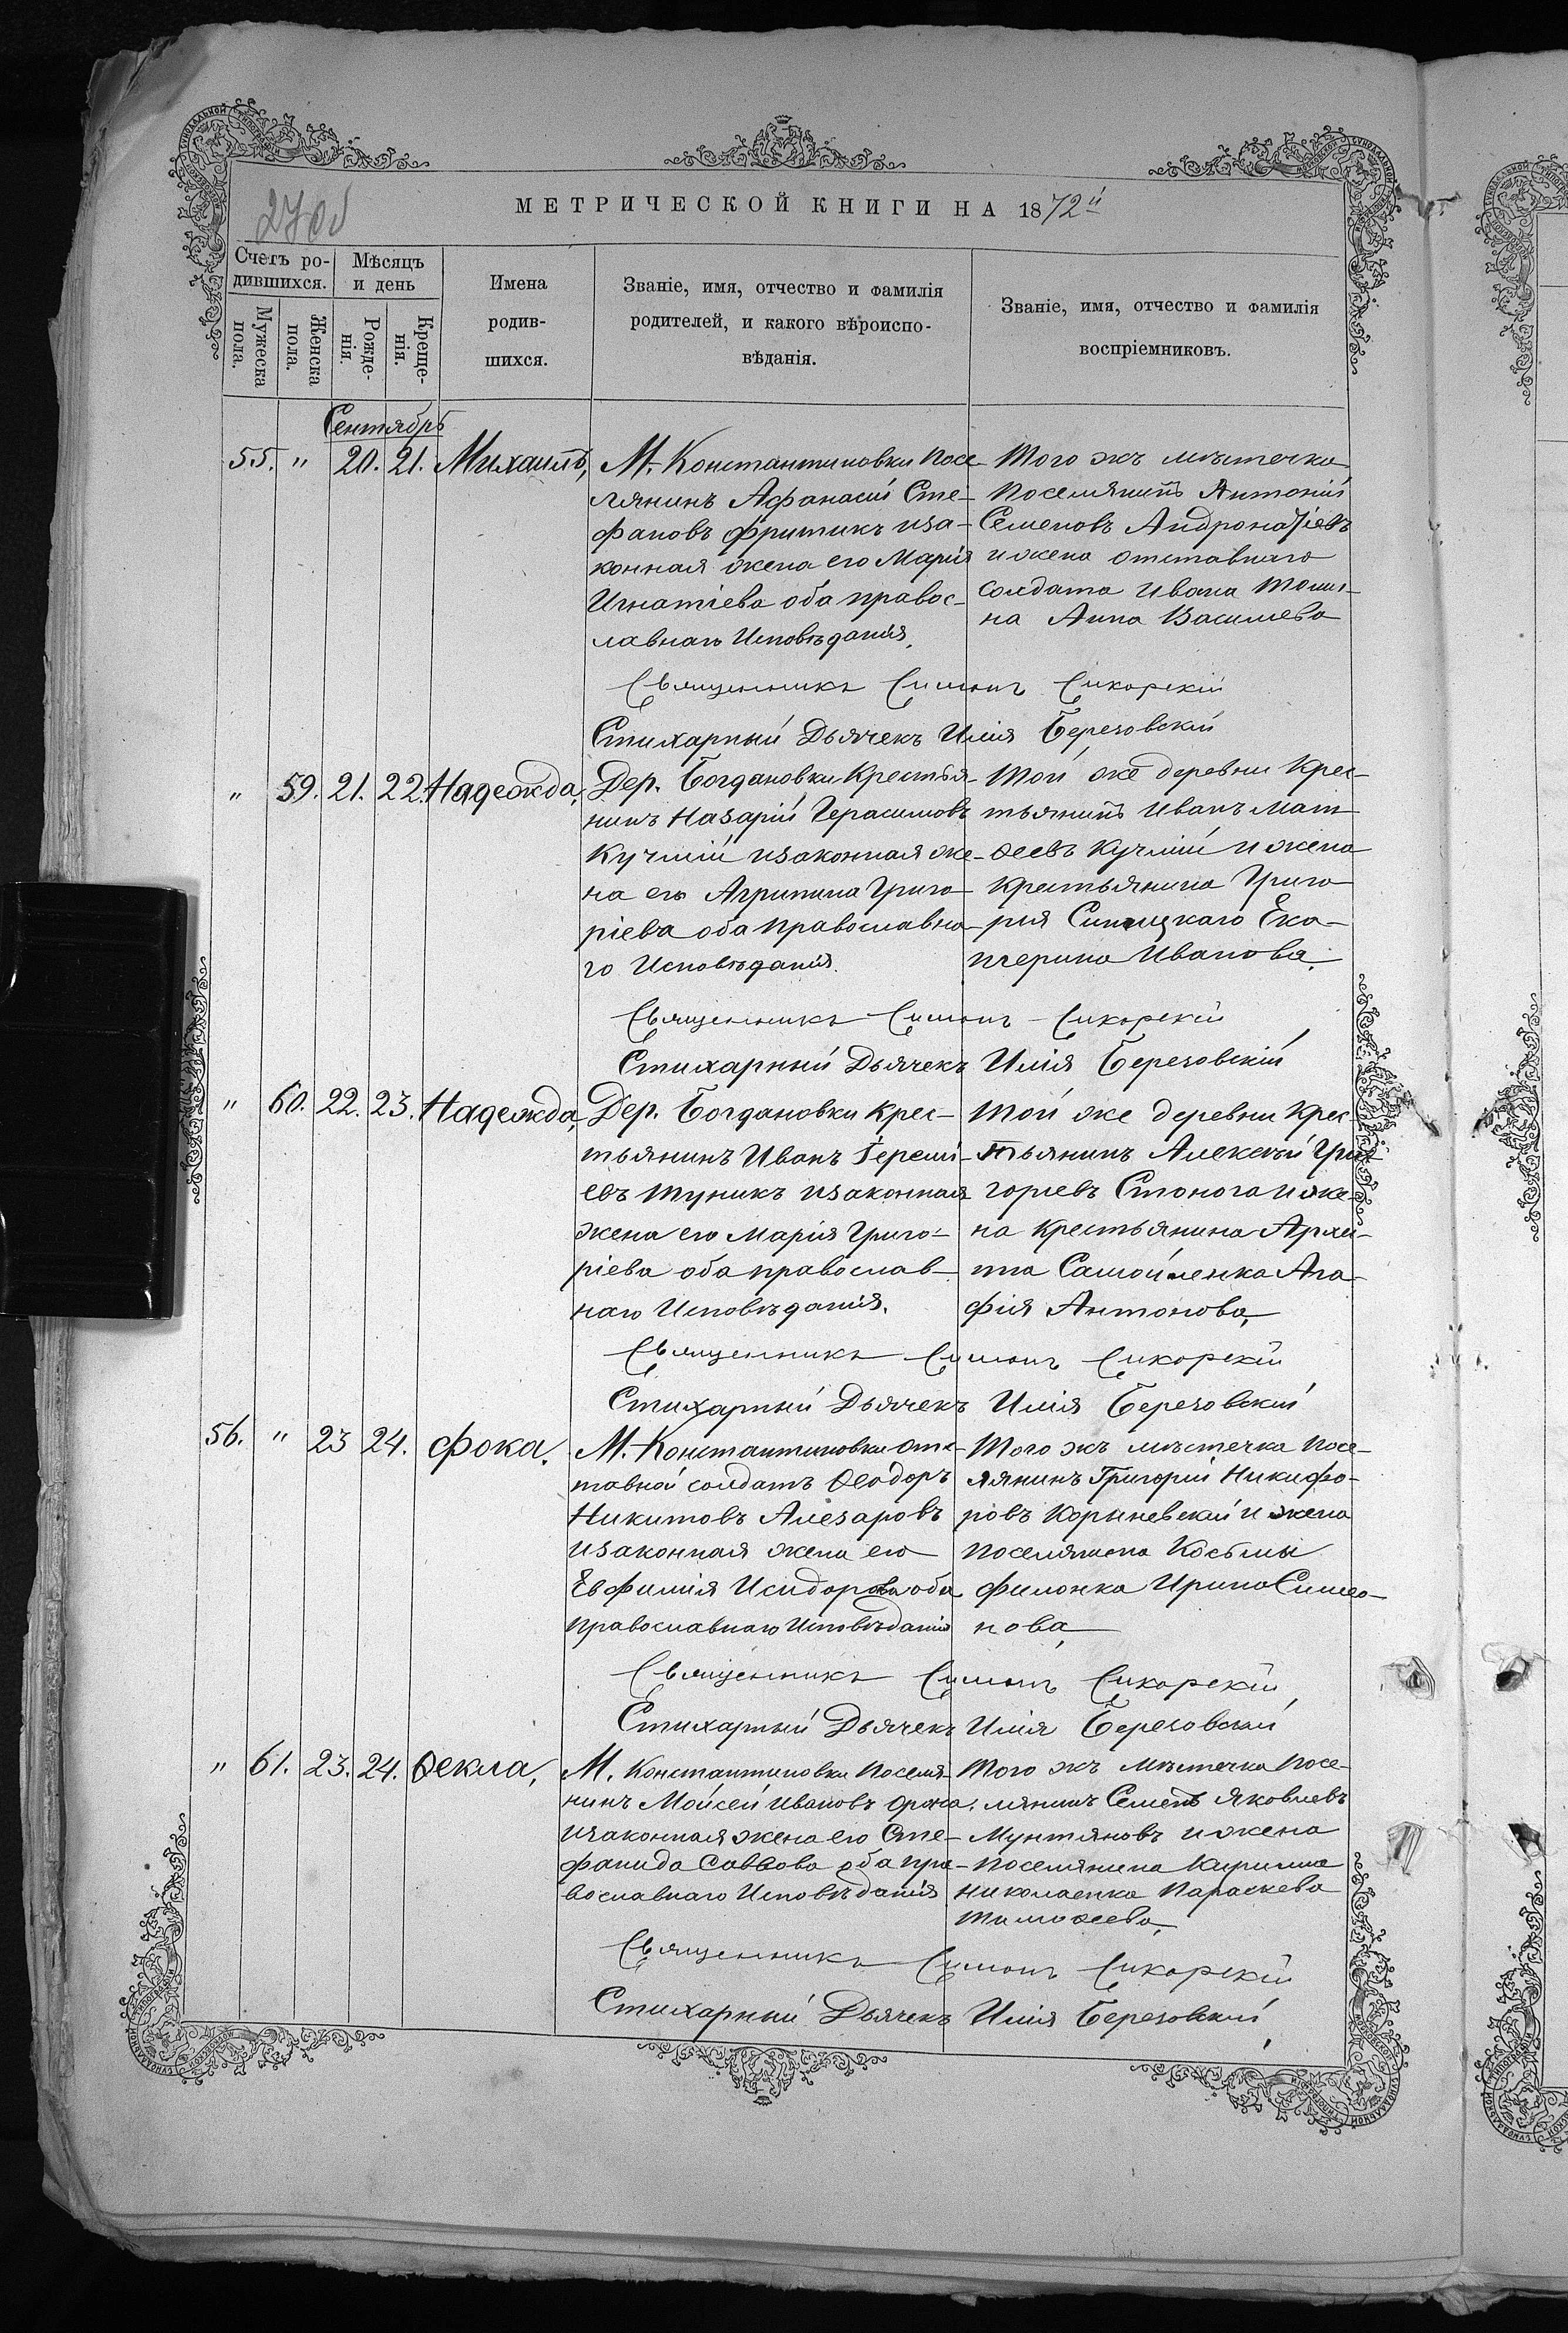 270об
МЕТРИЧЕСКОЙ КНИГИ НА 1872й
Счетъ ро-
дившихся.
Мѣсяцъ
и день
Имена
родив-
шихся.
Званіе, имя, отчество и фамилія
родителей, и какого вѣроиспо-
вѣданія.
Званіе, имя, отчество и фамилія
воспріемниковъ.
Мужеска
пола.
Женска
пола.
Рожде-
нія.
Креще-
нія.
Сентябрь
55. " 20. 21. Михаилъ,
М. Константиновки Посе-
лянинъ Афанасій Сте-
фановъ Фритикъ иза-
конная жена его Марія
Игнатіева оба правос-
лавнаго Исповѣданія.
Того жъ мѣстечка
Поселянинъ Антоній
Семеновъ Андронатіевъ
и жена отставнаго
солдата Ивана Томи-
на Анна Васильева
Священникъ Симонъ Сикорскій
Стихарный Дьячекъ Илія Березовскій
" 59. 21. 22. Надежда,
Дер. Богдановки Крестья-
нинъ Назарій Герасимовъ
Кучмій изаконная же-
на его Агрипина Григо-
ріева оба православна-
го Исповѣданія.
Той же деревни Крес-
тьянинъ Иванъ Мат-
ѳеевъ Кучмій и жена
крестьянина Григо-
рия Синицкаго Ека-
терина Иванова.
Священникъ Симонъ Сикорскій
Стихарный Дьячекъ Илія Березовскій
" 60. 22. 23. Надежда,
Дер. Богдановки Крес-
тьянинъ Иванъ Іеремі-
евъ Туникъ изаконная
жена его Марія Григо-
ріева оба православ-
наго Исповѣданія.
Той же деревни Крес-
тьянинъ Алексѣй Гри-
горіевъ Стонога и же-
на крестьянина Архи-
па Самойленка Ага-
фія Антонова,
Священникъ Симонъ Сикорскій
Стихарный Дьячекъ Илія Березовскій
56. " 23 24. Фока.
М. Константиновки Отс-
тавной солдатъ Ѳеодоръ
Никитовъ Алезаровъ
изаконная жена его
Евфимія Исидорова оба
православнаго Исповѣданія
Того жъ мѣстечка Посе-
лянинъ Григорій Никифо-
ровъ Корыневскій и жена
поселянина Косьмы
Филонка Ирина Симео-
нова,
Священникъ Симонъ Сикорскій
Стихарный Дьячекъ Илія Березовскій
" 61. 23. 24. Ѳекла,
М. Константиновки Поселя-
нинъ Мойсей Ивановъ
изаконная жена его Сте-
фанида Саввова оба пра-
вославнаго Исповѣданія
Того жъ Мѣстечка Посе-
лянинъ Семенъ Яковлевъ
Мунтяновъ и жена
поселянина Кирилла
Николаенка Параскева
Тимоѳеева,
Священникъ Симонъ Сикорскій
Стихарный Дьячекъ Илія Березовскій